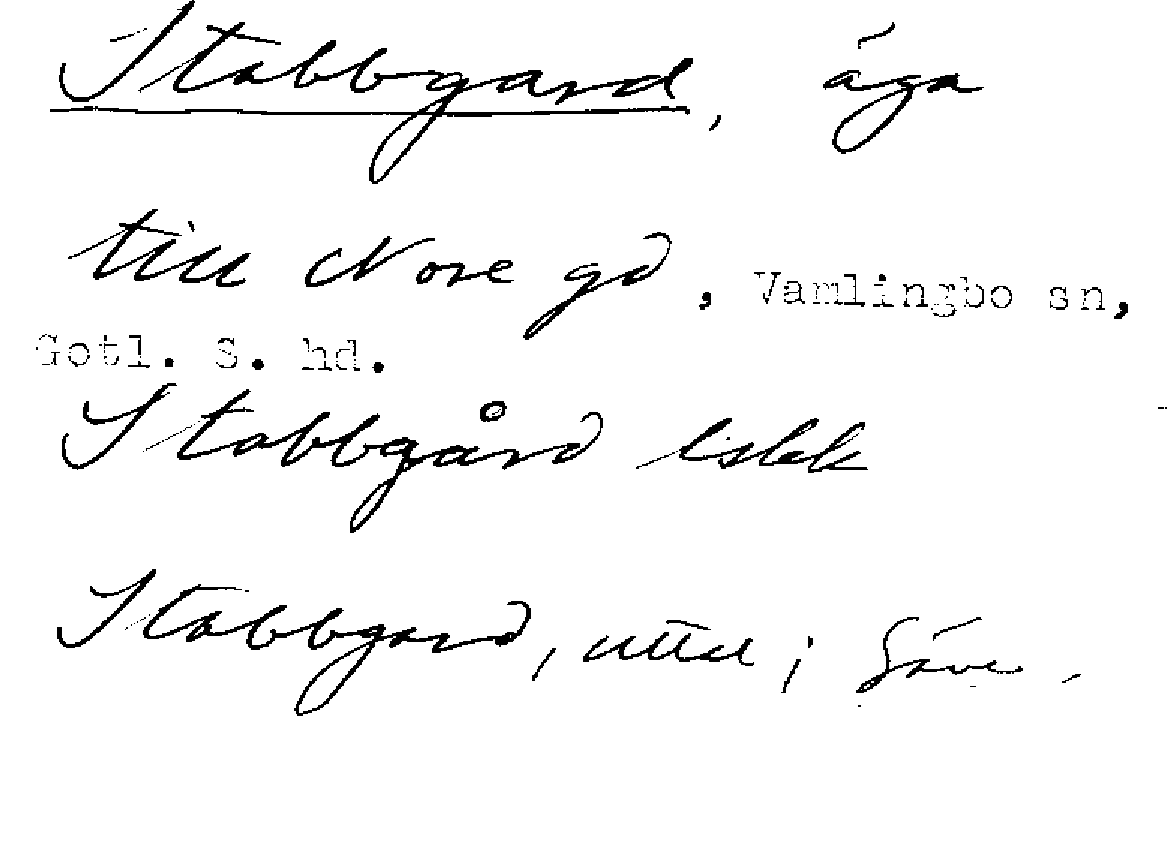 Stabbgard, äga
till Nore gd, Vamlingbo sn,
Gotl. S. hd.
Stabbgård Eslek
Stabbgard, uttal; Säve.